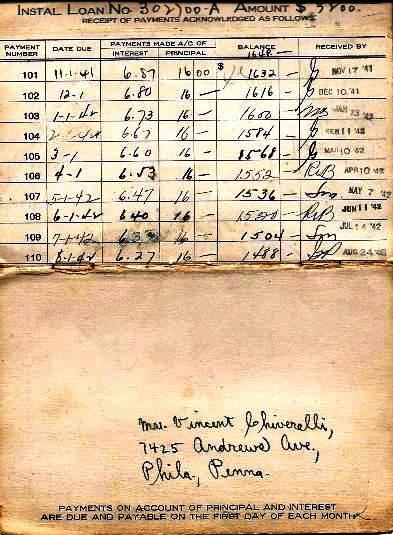 INSTAL LOAN NO. 302700-A AMOUNT $3200.
RECEIPT OF PAYMENTS ACKNOWLEDGED AS FOLLOWS
PAYMENT NUMBER DATE DUE PAYMENTS MADE A/C OF INTEREST PRINCIPAL BALANCE RECEIVED BY
1648.—
101 11-1-41 6.87 16 00 $ 1632 — NOV 17 '41
102 12-1 6.80 16 — 1616 — DEC 10 '41
103 1-1-42 6.73 16 — 1600 — JAN 13 '42
104 2-1-42 6.67 16 — 1584 — FEB 11 '42
105 3-1 6.60 16 — 1568 — MAR 10 '42
106 4-1 6.53 16 — 1552 — RB APR 10 '42
107 5-1-42 6.47 16 — 1536 — MAY 7 '42
108 6-1-42 6.40 16 — 1520 — RB JUN 11 '42
109 7-1-42 6.33 16 — 1504 — JUL 14 '42
110 8-1-42 6.27 16 — 1488 — AUG 24 '42
Mrs. Vincent Chiveralli,
7425 Andrews Ave.,
Phila., Penna.
PAYMENTS ON ACCOUNT OF PRINCIPAL AND INTEREST
ARE DUE AND PAYABLE ON THE FIRST DAY OF EACH MONTH